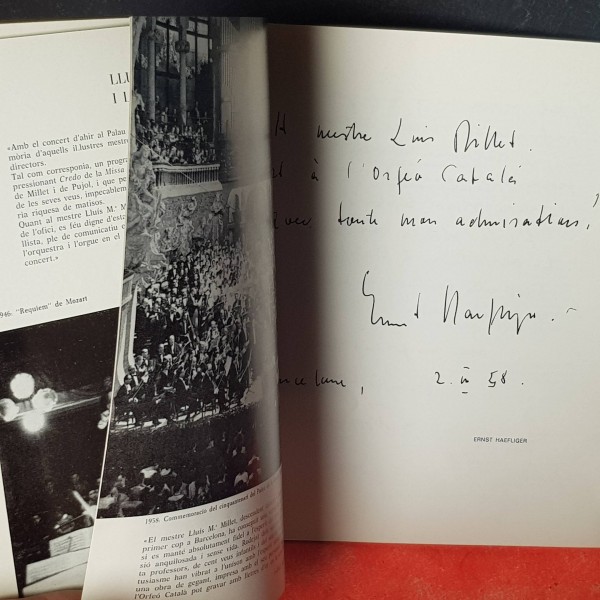 LLU
I L
«Amb el concert d'ahir al Palau
mòria d'aquells il.lustres mestr
directors.
Tal com corresponia, un progra
pressionant Credo de la Missa
de Millet i de Pujol, i que pe
de les seves veus, impecablem
ria riquesa de matisos.
Quant al mestre Lluís M.ª M
de l'ofici, es féu digne d'esta
llista, ple de comunicatiu c
l'orquestra i l'orgue en el
concert.»
946. "Requiem" de Mozart
1958. Commemoració del cinquantenari del Palau
«El mestre Lluís M.ª Millet, descendent
primer cop a Barcelona, ha conseguit
si es manté absolutament fidel a l'esperit
sió anquilosada i sense vida. Radiant
ta professors, de cent veus palatines
tusiasme han vibrat a l'uníson amb l'
una obra de gegant, impresa amb el
l'Orfeó Català pot gravar amb lletres d'
mestre Luis Millet.
à l'Orfeó Català
avec toute mon admiration,
Ernst Haefliger.
rcelone, 2. III 58.
ERNST HAEFLIGER